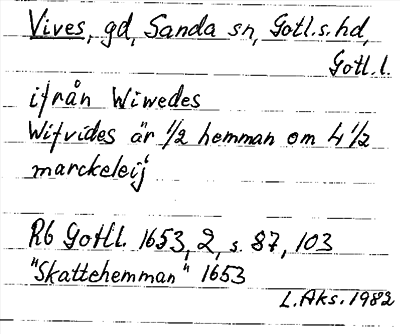 Vives, gd, Sanda sn, Gotl.s.hd,
Gotl.l.
ifrån Wiwedes
Wifvides är 1/2 hemman om 4 1/2
marckeleij
Rb Gotll. 1653, 2, s. 87, 103
"Skattehemman" 1653
L.Aks. 1982